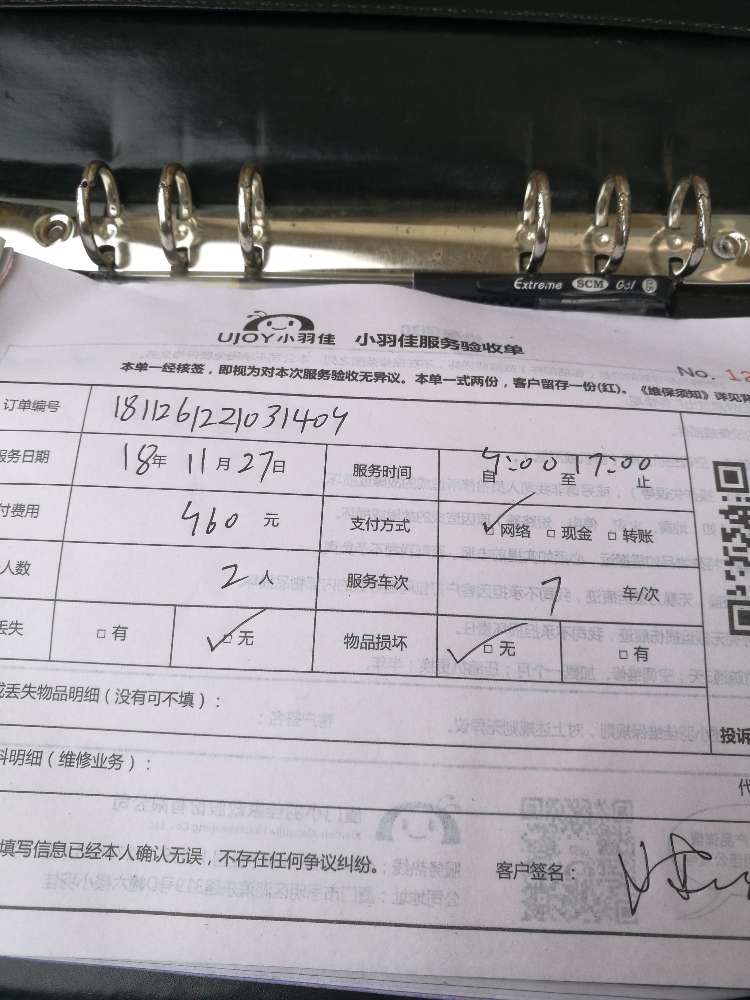 Extreme SCM Gel
UJOY小羽佳 小羽佳服务验收单
No. 12
本单一经核签，即视为对本次服务验收无异议。本单一式两份，客户留存一份(红)。《维保须知》详见背
订单编号 1811261221031404
服务日期 18年 11月 27日 服务时间 自 9:00 至 17:00 止
付费用 460 元 支付方式 ✓□网络 □现金 □转账
人数 2人 服务车次 1 车/次
丢失 □有 ✓□无 物品损坏 ✓□无 □有
或丢失物品明细（没有可不填）：
投诉
料明细（维修业务）：
填写信息已经本人确认无误，不存在任何争议纠纷。 客户签名：